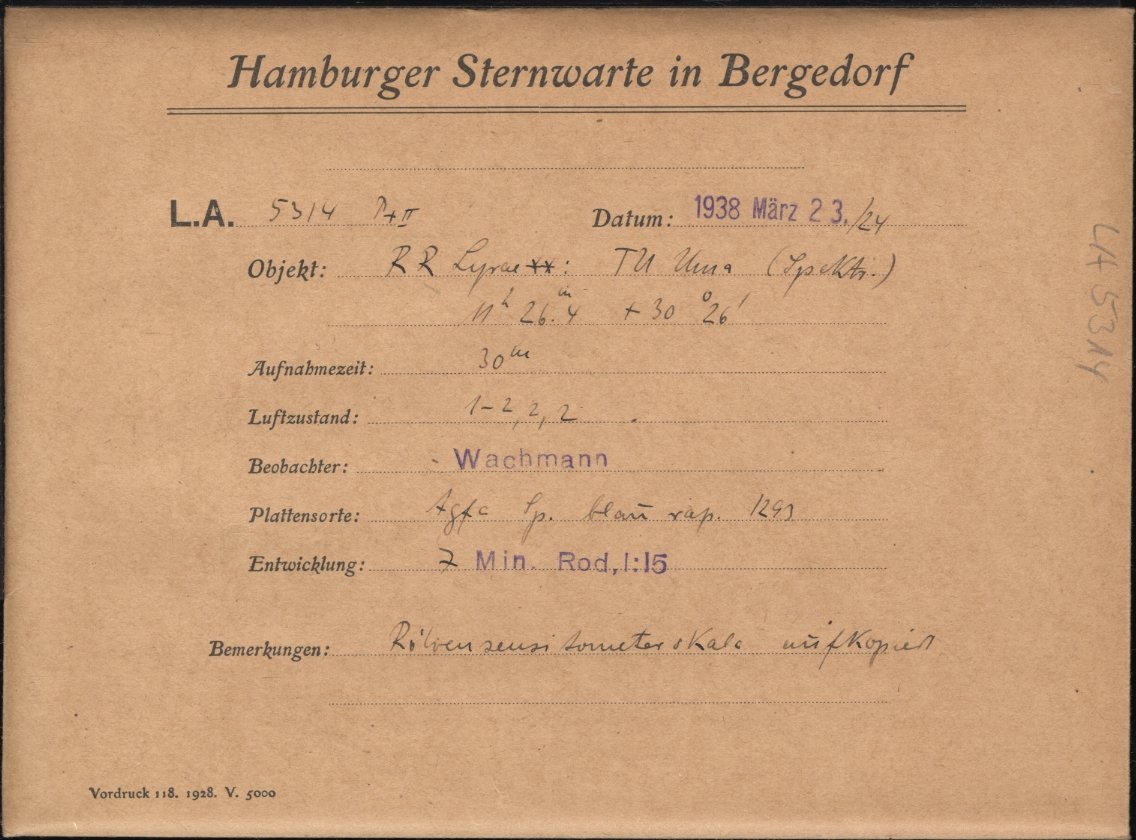 Hamburger Sternwarte in Bergedorf
L.A. 5314 P+II Datum: 1938 März 23./24
Objekt: RR Lyrae xx: TU Uma (Spektr.)
11h 26.m4 +30°26'
Aufnahmezeit: 30m
Luftzustand: 1-2, 2, 2
Beobachter: Wachmann
Plattensorte: Agfa Sp. blau rap. 1293
Entwicklung: 7 Min. Rod, 1:15
Bemerkungen: Röhrensensitometerskala aufkopiert
Vordruck 118. 1928. V. 5000
LA 5314